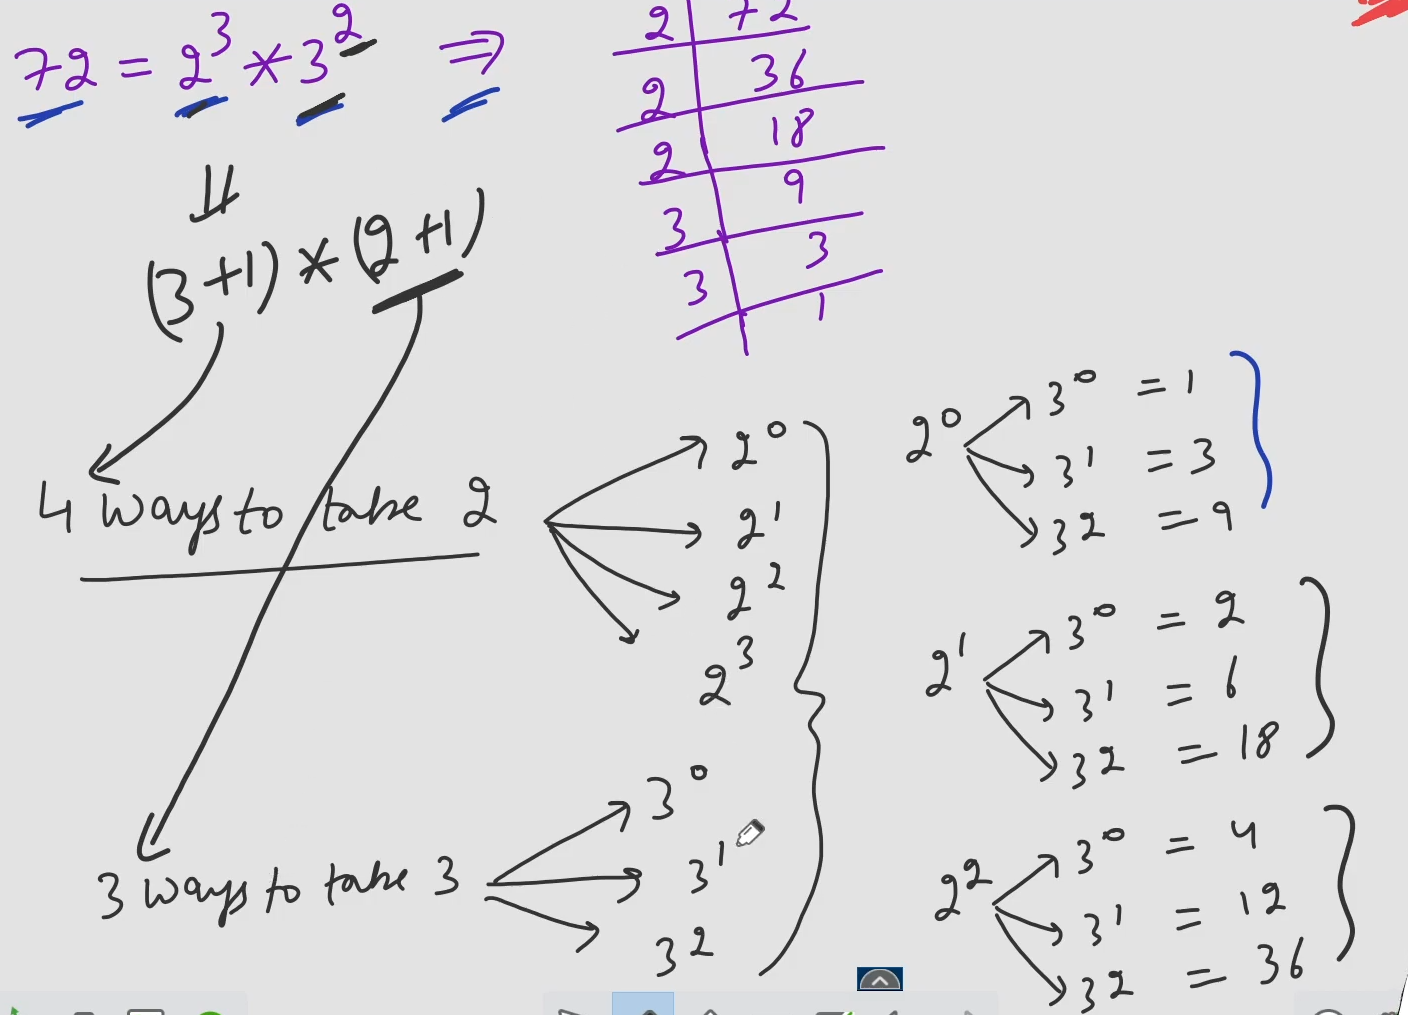 72 = 2^3 * 3^2 ⇒
⇓
(3+1) * (2+1)
2 | 72
2 | 36
2 | 18
3 | 9
3 | 3
1
4 ways to take 2
2^0
2^1
2^2
2^3
3 ways to take 3
3^0
3^1
3^2
2^0
3^0 = 1
3^1 = 3
3^2 = 9
2^1
3^0 = 2
3^1 = 6
3^2 = 18
2^2
3^0 = 4
3^1 = 12
3^2 = 36